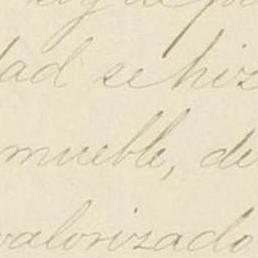 dad se hiz
mueble, de
valorizado